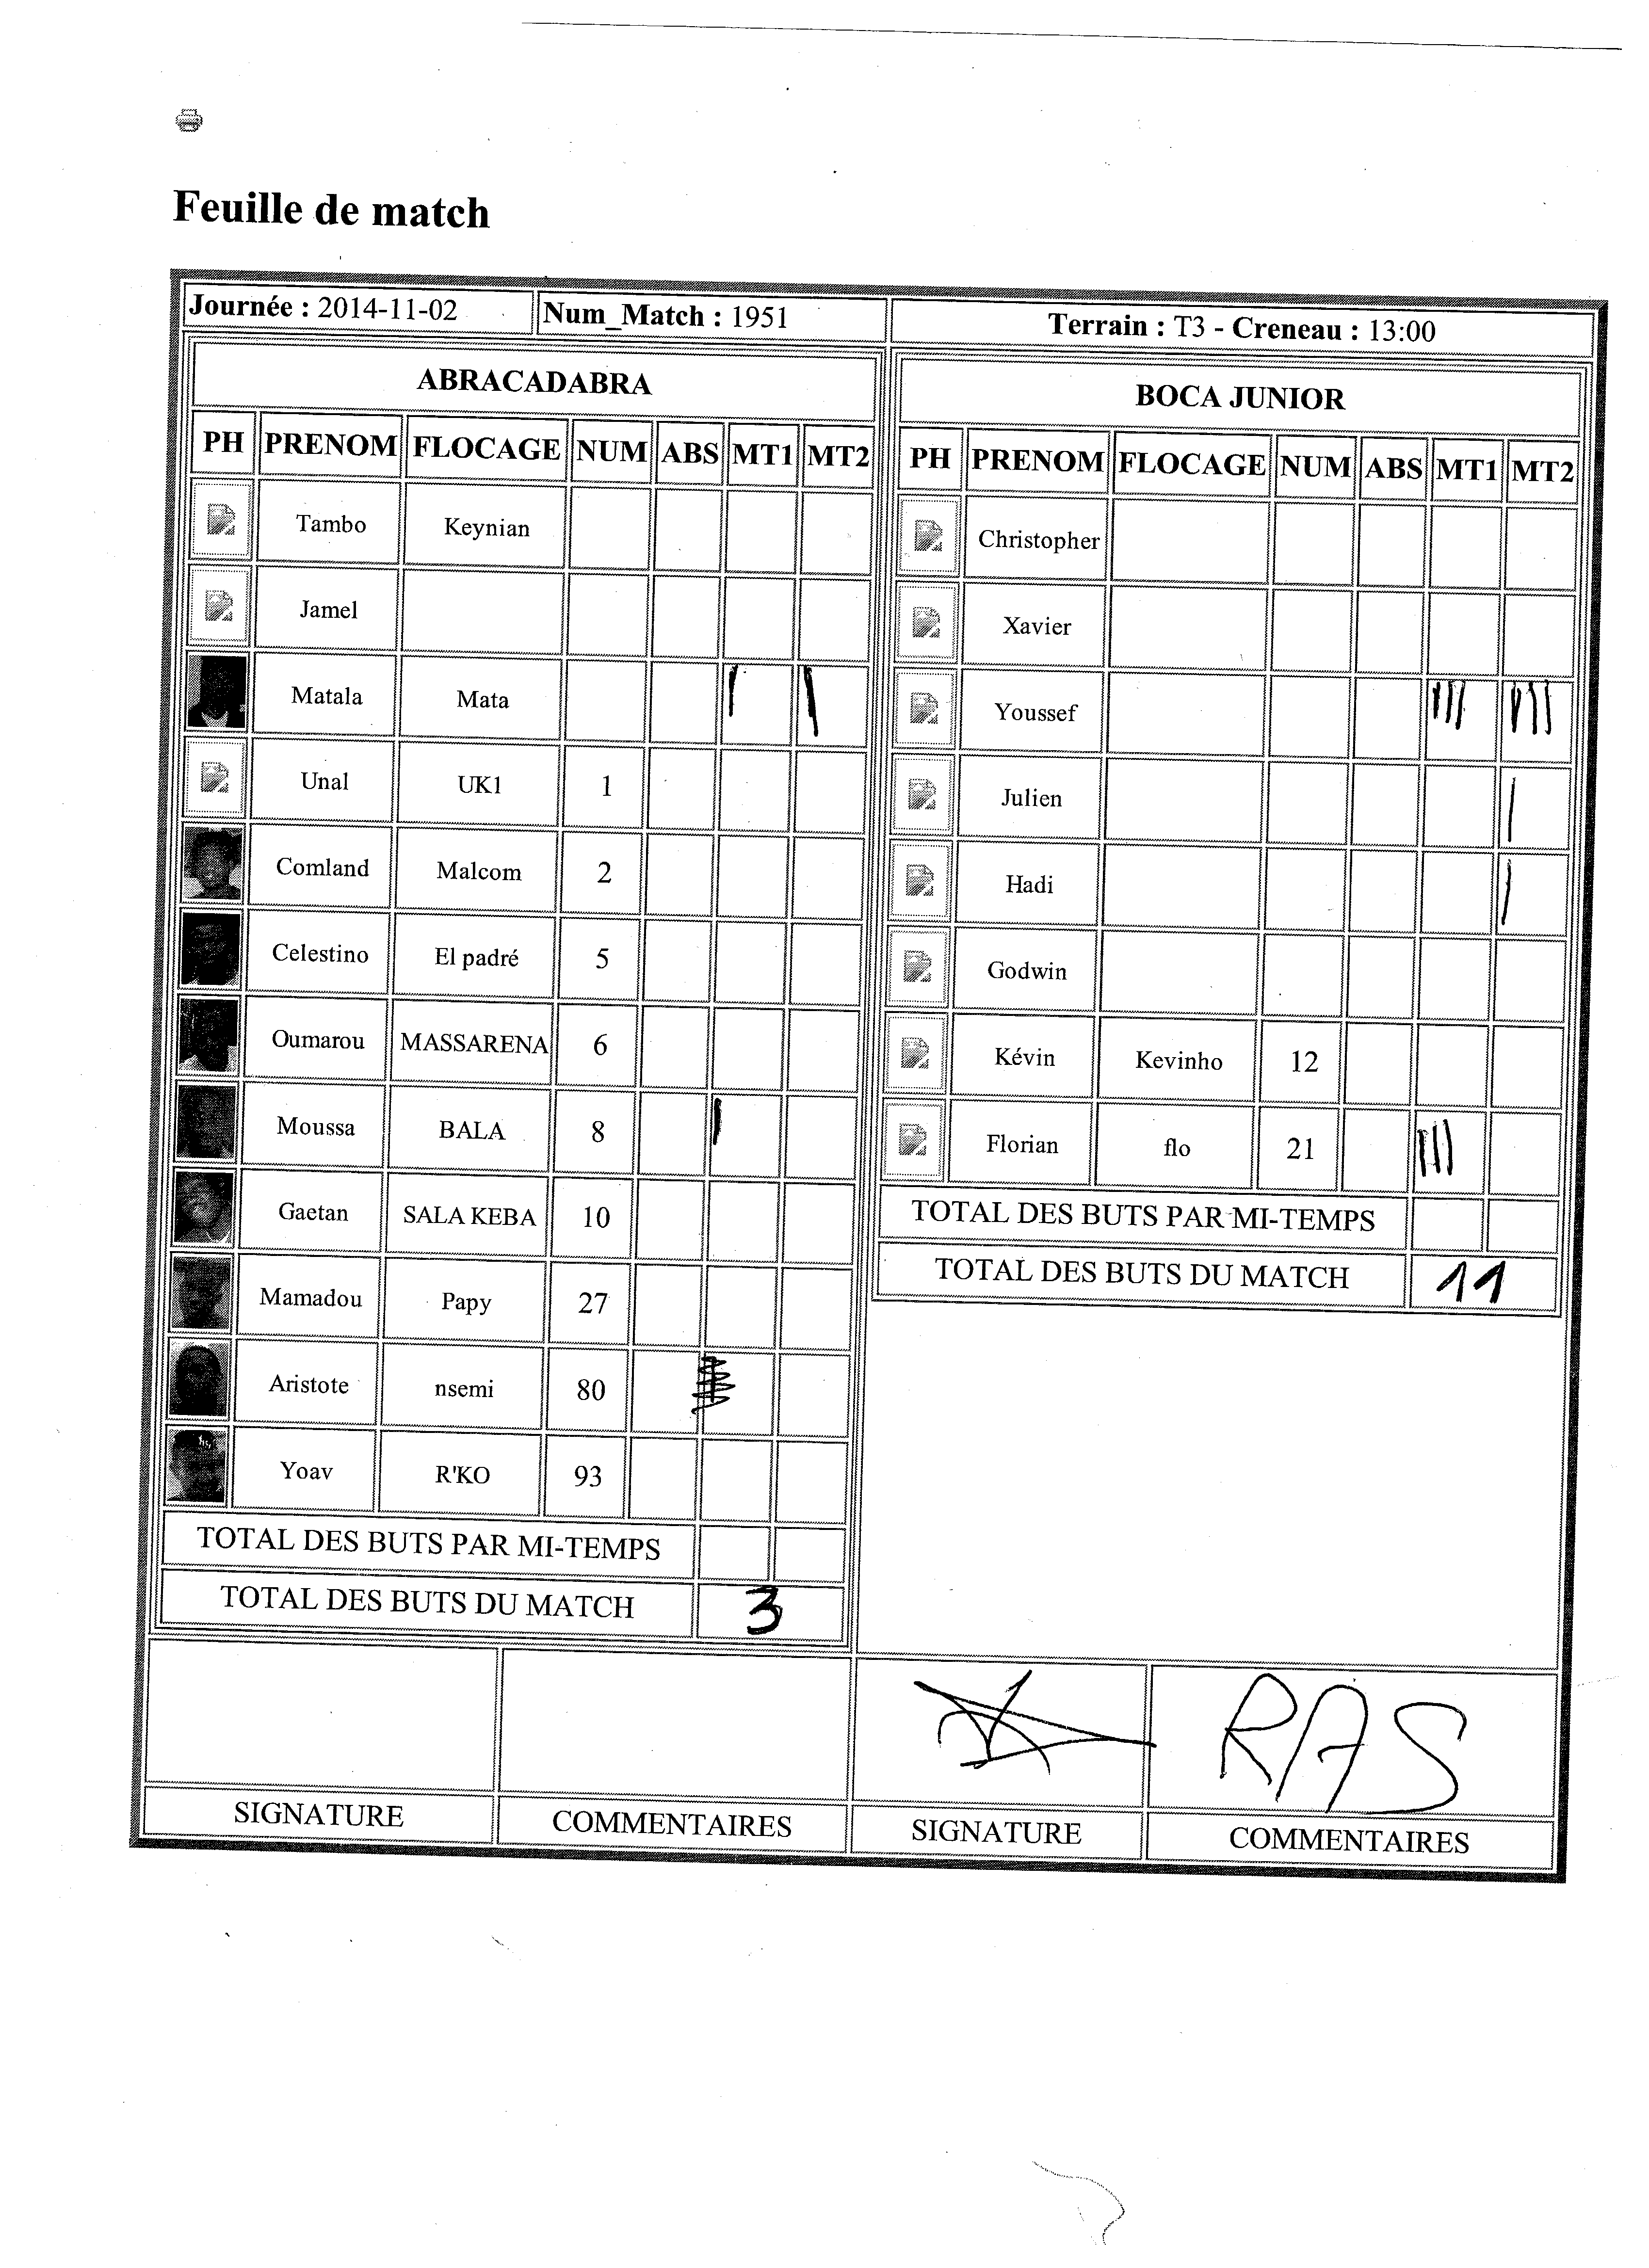 Feuille de match
Journée : 2014-11-02 Num_Match : 1951 Terrain : T3 - Creneau : 13:00
ABRACADABRA
PH PRENOM FLOCAGE NUM ABS MT1 MT2
Tambo Keynian
Jamel
Matala Mata | |
Unal UK1 1
Comland Malcom 2
Celestino El padré 5
Oumarou MASSARENA 6
Moussa BALA 8 |
Gaetan SALA KEBA 10
Mamadou Papy 27
Aristote nsemi 80
Yoav R'KO 93
TOTAL DES BUTS PAR MI-TEMPS
TOTAL DES BUTS DU MATCH 3
BOCA JUNIOR
PH PRENOM FLOCAGE NUM ABS MT1 MT2
Christopher
Xavier
Youssef ||| |||
Julien |
Hadi |
Godwin
Kévin Kevinho 12
Florian flo 21 |||
TOTAL DES BUTS PAR MI-TEMPS
TOTAL DES BUTS DU MATCH 11
RAS
SIGNATURE COMMENTAIRES SIGNATURE COMMENTAIRES